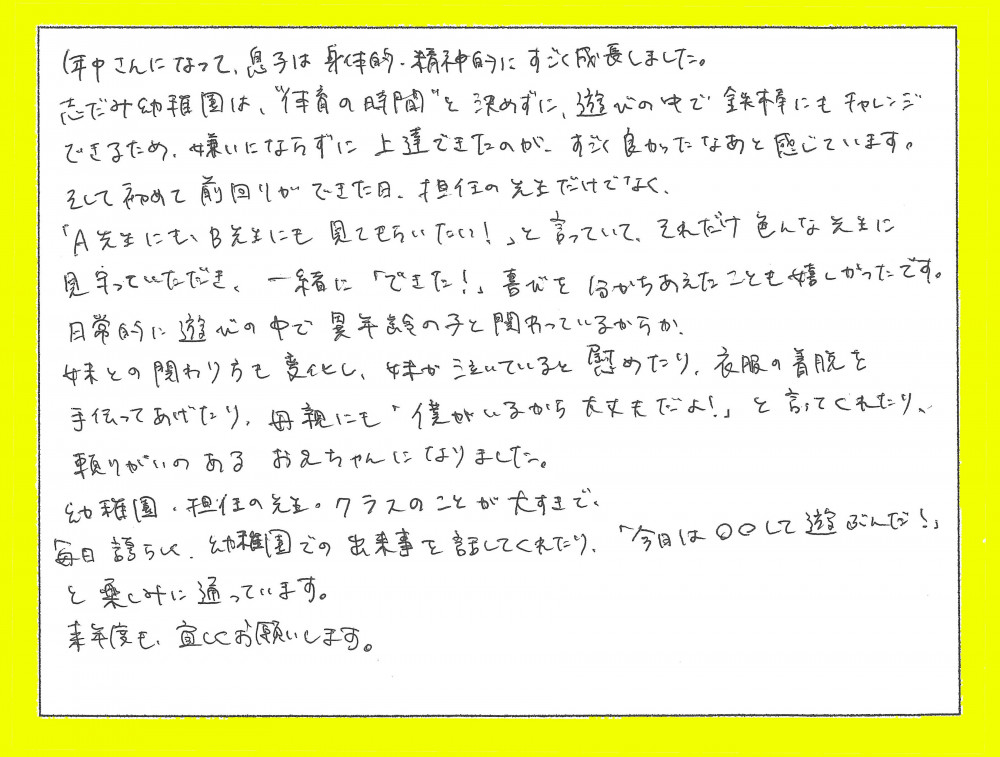 年中さんになって、息子は身体的・精神的にすごく成長しました。
志だみ幼稚園は、"体育の時間"と決めずに、遊びの中で鉄棒にもチャレンジ
できるため、嫌いにならずに上達できたのが、すごく良かったなあと感じています。
そして初めて前回りができた日、担任の先生だけでなく、
「A先生にも、B先生にも見てもらいたい!」と言っていて、それだけ色んな先生に
見守っていただき、一緒に「できた!」喜びを分かちあえたことも嬉しかったです。
日常的に遊びの中で異年齢の子と関わっているからか、
妹との関わり方も変化し、妹が泣いていると慰めたり、衣服の着脱を
手伝ってあげたり、母親にも「僕がいるから大丈夫だよ!」と言ってくれたり、
頼りがいのあるお兄ちゃんになりました。
幼稚園・担任の先生・クラスのことが大すきで、
毎日誇らしく、幼稚園での出来事を話してくれたり、「今日は○○して遊ぶんだ!」
と楽しみに通っています。
来年度も、宜しくお願いします。